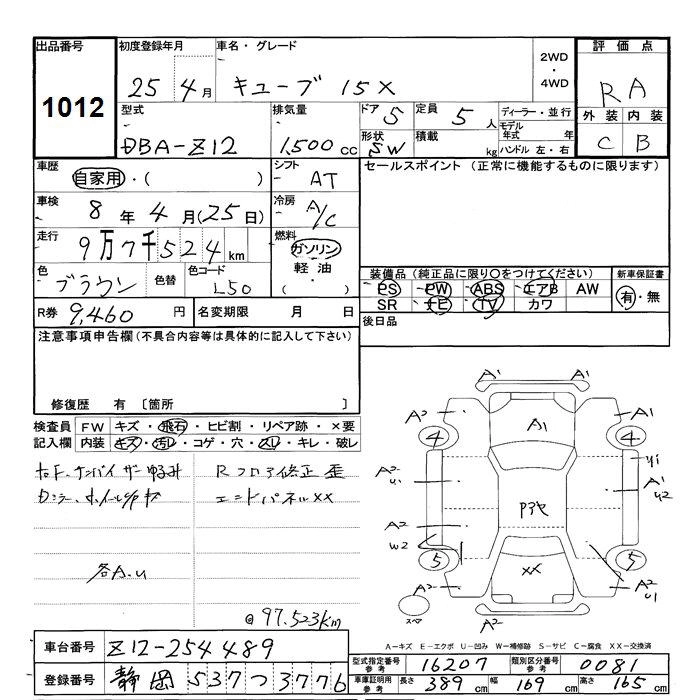 出品番号 初度登録年月 車名・グレード 2WD・4WD 評価点
1012 25 4月 キューブ 15X RA
型式 排気量 ドア 5 定員 5人 ディーラー・並行 外装 内装
DBA-Z12 1,500cc 形状 SW 積載 kg モデル年式 年 ハンドル 左・右 C B
車歴 自家用・( ) シフト AT セールスポイント (正常に機能するものに限ります)
車検 8年4月(25日) 冷房 A/C
走行 9万7千524km 燃料 ガソリン 軽油・( )
色 ブラウン 色替 色コード L50
装備品(純正品に限り○をつけてください) 新車保証書
PS PW ABS エアB AW 有・無
SR ナビ TV カワ
R券 9,460円 名変期限 月 日 後日品
注意事項申告欄(不具合内容等は具体的に記入して下さい)
修復歴 有 〔箇所 〕
検査員 FW キズ・飛石・ヒビ割・リペア跡・×要
記入欄 内装 キズ・汚レ・コゲ・穴・スレ・キレ・破レ
Rフロア修正歪
エンドパネルXX
各A.U
@97.523km
A¹ A¹
A² A1 A¹
4 4
A² U1 U1
A¹ U2
A² W2 Pアヤ
5 XX 5
A² A² A² U1
スペア
A−キズ E−エクボ U−凹み W−補修跡 S−サビ C−腐食 XX−交換済
車台番号 Z12-254489
登録番号 静岡 537つ3776
型式指定番号 参考 16207 類別区分番号 参考 0081
車庫証明用 参考 長さ 389cm 幅 169cm 高さ 165cm